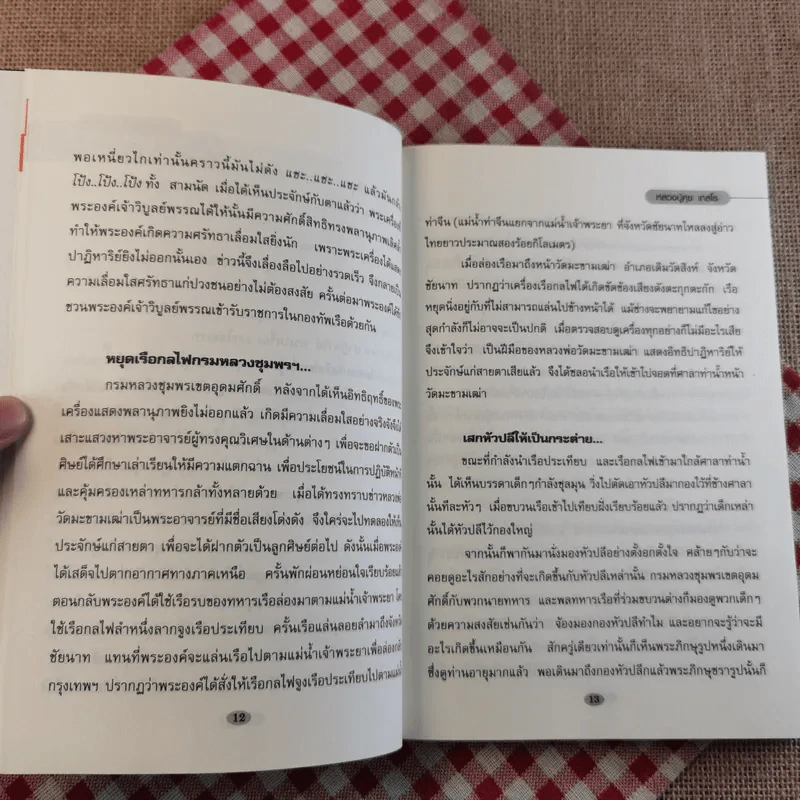 พอเหนี่ยวไกเท่านั้นคราวนี้มันไม่ดัง แชะ..แชะ..แชะ แล้วมันกลับ
โป้ง..โป้ง..โป้ง ทั้ง สามนัด เมื่อได้เห็นประจักษ์กับตาแล้วว่า พระเครื่อง
พระองค์เจ้าวิบูลย์พรรณได้ให้นั้นมีความศักดิ์สิทธิทรงพลานุภาพ
ทำให้พระองค์เกิดความศรัทธาเลื่อมใสยิ่งนัก เพราะพระเครื่องได้
ปาฏิหาริย์ยิงไม่ออกนั้นเอง ข่าวนี้จึงเลื่องลือไปอย่างรวดเร็ว จึงกลายเป็น
ความเลื่อมใสศรัทธาแก่ปวงชนอย่างไม่ต้องสงสัย ครั้นต่อมาพระองค์ได้
ชวนพระองค์เจ้าวิบูลย์พรรณเข้ารับราชการในกองทัพเรือด้วยกัน
หยุดเรือกลไฟกรมหลวงชุมพรฯ...
กรมหลวงชุมพรเขตอุดมศักดิ์ หลังจากได้เห็นอิทธิฤทธิ์ของพระ
เครื่องแสดงพลานุภาพยิงไม่ออกแล้ว เกิดมีความเลื่อมใสอย่างจริงจัง
เสาะแสวงหาพระอาจารย์ผู้ทรงคุณวิเศษในด้านต่างๆ เพื่อจะขอฝากตัวเป็น
ศิษย์ได้ศึกษาเล่าเรียนให้มีความแตกฉาน เพื่อประโยชน์ในการปฏิบัติ
และคุ้มครองเหล่าทหารกล้าทั้งหลายด้วย เมื่อได้ทรงทราบข่าวหลวงพ่อ
วัดมะขามเฒ่าเป็นพระอาจารย์ที่มีชื่อเสียงโด่งดัง จึงใคร่จะไปทดลองให้
ประจักษ์แก่สายตา เพื่อจะได้ฝากตัวเป็นลูกศิษย์ต่อไป ดังนั้นเมื่อพระองค์
ได้เสด็จไปตากอากาศทางภาคเหนือ ครั้นพักผ่อนหย่อนใจเรียบร้อยแล้ว
ตอนกลับพระองค์ได้ใช้เรือรบของทหารเรือล่องมาตามแม่น้ำเจ้าพระยา
ใช้เรือกลไฟลำหนึ่งลากจูงเรือประเทียบ ครั้นเรือแล่นลอยลำมาถึงจังหวัด
ชัยนาท แทนที่พระองค์จะแล่นเรือไปตามแม่น้ำเจ้าพระยาเพื่อล่อง
กรุงเทพฯ ปรากฏว่าพระองค์ได้สั่งให้เรือกลไฟจูงเรือประเทียบไปตามแม่น้ำ
12
หลวงปู่ศุข เกสโร
ท่าจีน (แม่น้ำท่าจีนแยกจากแม่น้ำเจ้าพระยา ที่จังหวัดชัยนาทไหลลงสู่อ่าว
ไทยยาวประมาณสองร้อยกิโลเมตร)
เมื่อล่องเรือมาถึงหน้าวัดมะขามเฒ่า อำเภอเดิมวัดสิงห์ จังหวัด
ชัยนาท ปรากฏว่าเครื่องเรือกลไฟได้เกิดขัดข้องเสียงดังตะกุกตะกัก เรือ
หยุดนิ่งอยู่กับที่ไม่สามารถแล่นไปข้างหน้าได้ แม้ช่างจะพยายามแก้ไขอย่าง
สุดกำลังก็ไม่อาจจะเป็นปกติ เมื่อตรวจสอบดูเครื่องทุกอย่างก็ไม่มีอะไรเสีย
จึงเข้าใจว่า เป็นฝีมือของหลวงพ่อวัดมะขามเฒ่า แสดงอิทธิปาฏิหาริย์ให้
ประจักษ์แก่สายตาเสียแล้ว จึงได้ชลอนำเรือให้เข้าไปจอดที่ศาลาท่าน้ำหน้า
วัดมะขามเฒ่า
เสกหัวปลีให้เป็นกระต่าย...
ขณะที่กำลังนำเรือประเทียบ และเรือกลไฟเข้ามาใกล้ศาลาท่าน้ำ
นั้น ได้เห็นบรรดาเด็กๆกำลังชุลมุน วิ่งไปตัดเอาหัวปลีมากองไว้ที่ข้างศาลา
นั้นทีละหัวๆ เมื่อขบวนเรือเข้าไปเทียบฝั่งเรียบร้อยแล้ว ปรากฏว่าเด็กเหล่า
นั้นได้หัวปลีไว้กองใหญ่
จากนั้นก็พากันมานั่งมองหัวปลีอย่างตั้งอกตั้งใจ คล้ายๆกับว่าจะ
คอยดูอะไรสักอย่างที่จะเกิดขึ้นกับหัวปลีเหล่านั้น กรมหลวงชุมพรเขตอุดม
ศักดิ์กับพวกนายทหาร และพลทหารเรือที่ร่วมขบวนต่างก็มองดูพวกเด็กๆ
ด้วยความสงสัยเช่นกันว่า จ้องมองกองหัวปลีทำไม และอยากจะรู้ว่าจะมี
อะไรเกิดขึ้นเหมือนกัน สักครู่เดียวเท่านั้นก็เห็นพระภิกษุรูปหนึ่งเดินมา
ซึ่งดูท่านอายุมากแล้ว พอเดินมาถึงกองหัวปลีกแล้วพระภิกษุชรารูปนั้นก็
13